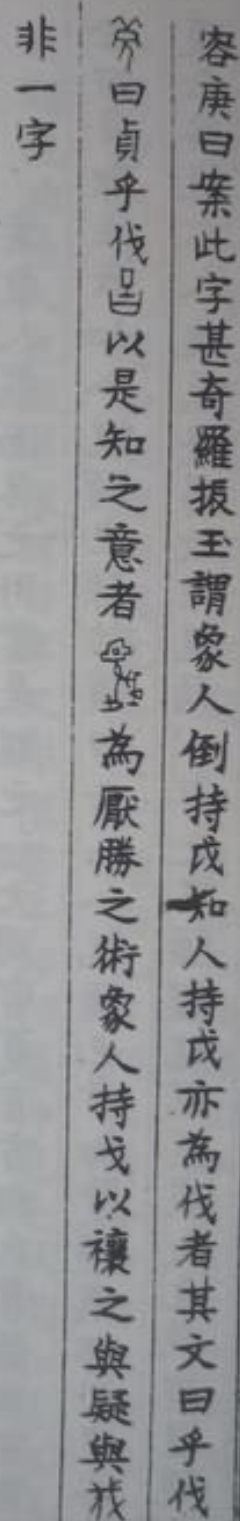 容庚曰案此字甚奇羅振玉謂象人倒持戉知人持戉亦為伐者其文曰乎伐
曰貞乎伐𢀛以是知之意者為厭勝之術象人持戈以禳之與疑與
非一字